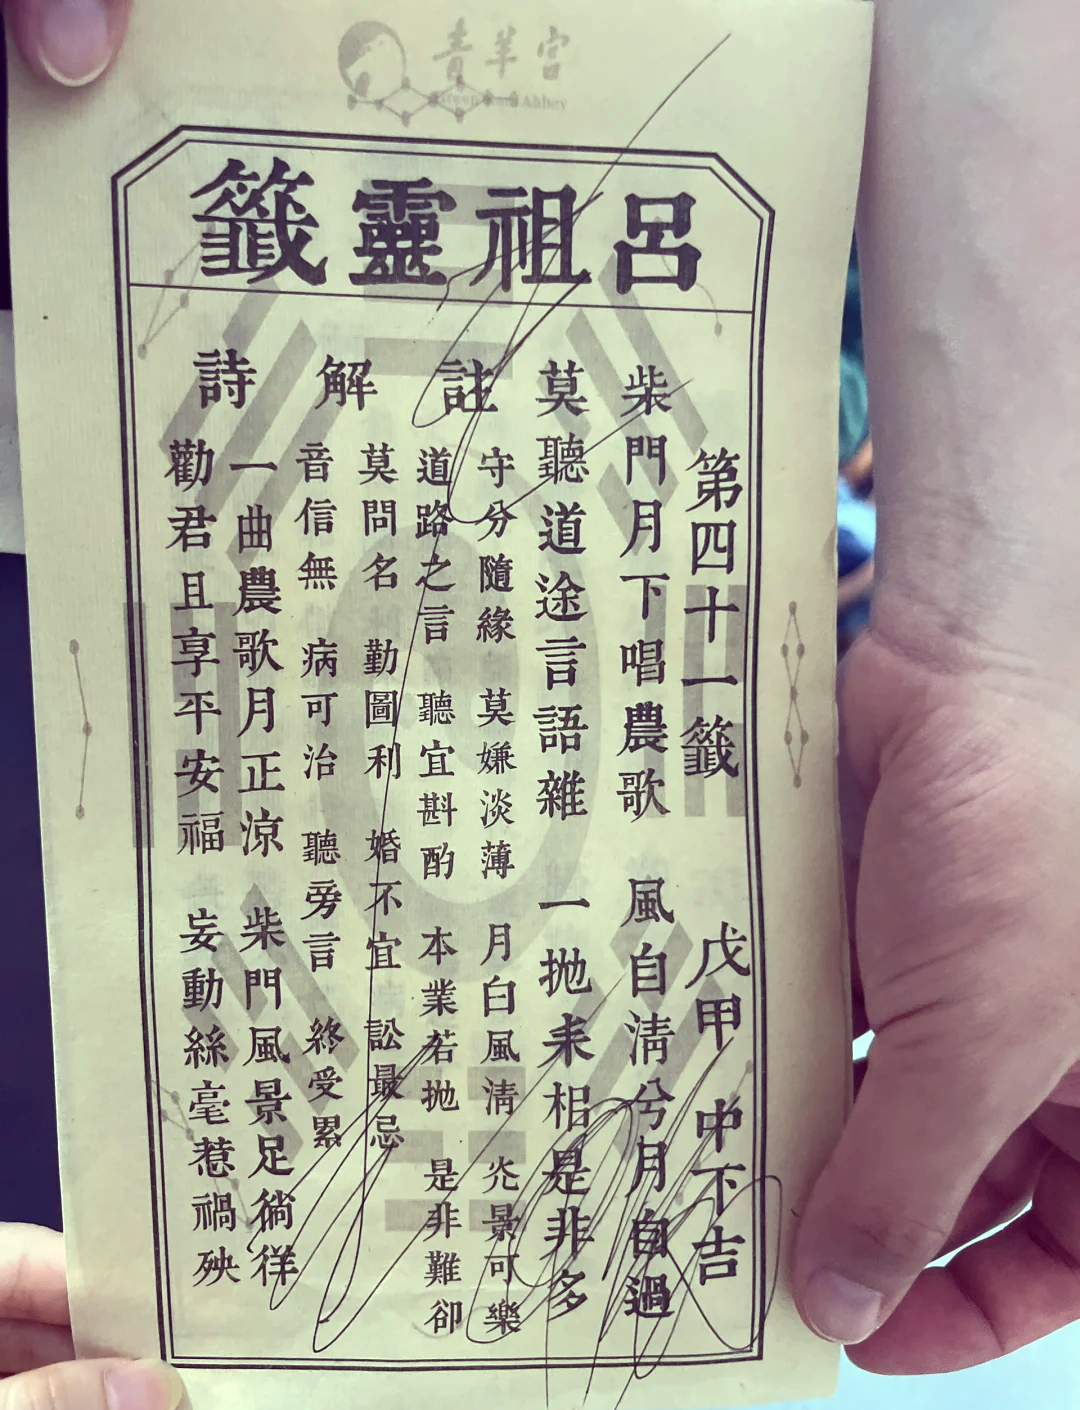 青羊宮
Green Ram Abbey
呂祖靈籤
第四十一籤 戊甲 中下吉
柴門月下唱農歌 風自淸兮月自過
莫聽道途言語雜 一拋耒耜是非多
註
守分隨緣 莫嫌淡薄 月白風淸 光景可樂
道路之言 聽宜斟酌 本業若拋 是非難卻
解
莫問名 勤圖利 婚不宜 訟最忌
音信無 病可治 聽旁言 終受累
詩
一曲農歌月正涼 柴門風景足徜徉
勸君且享平安福 妄動絲毫惹禍殃